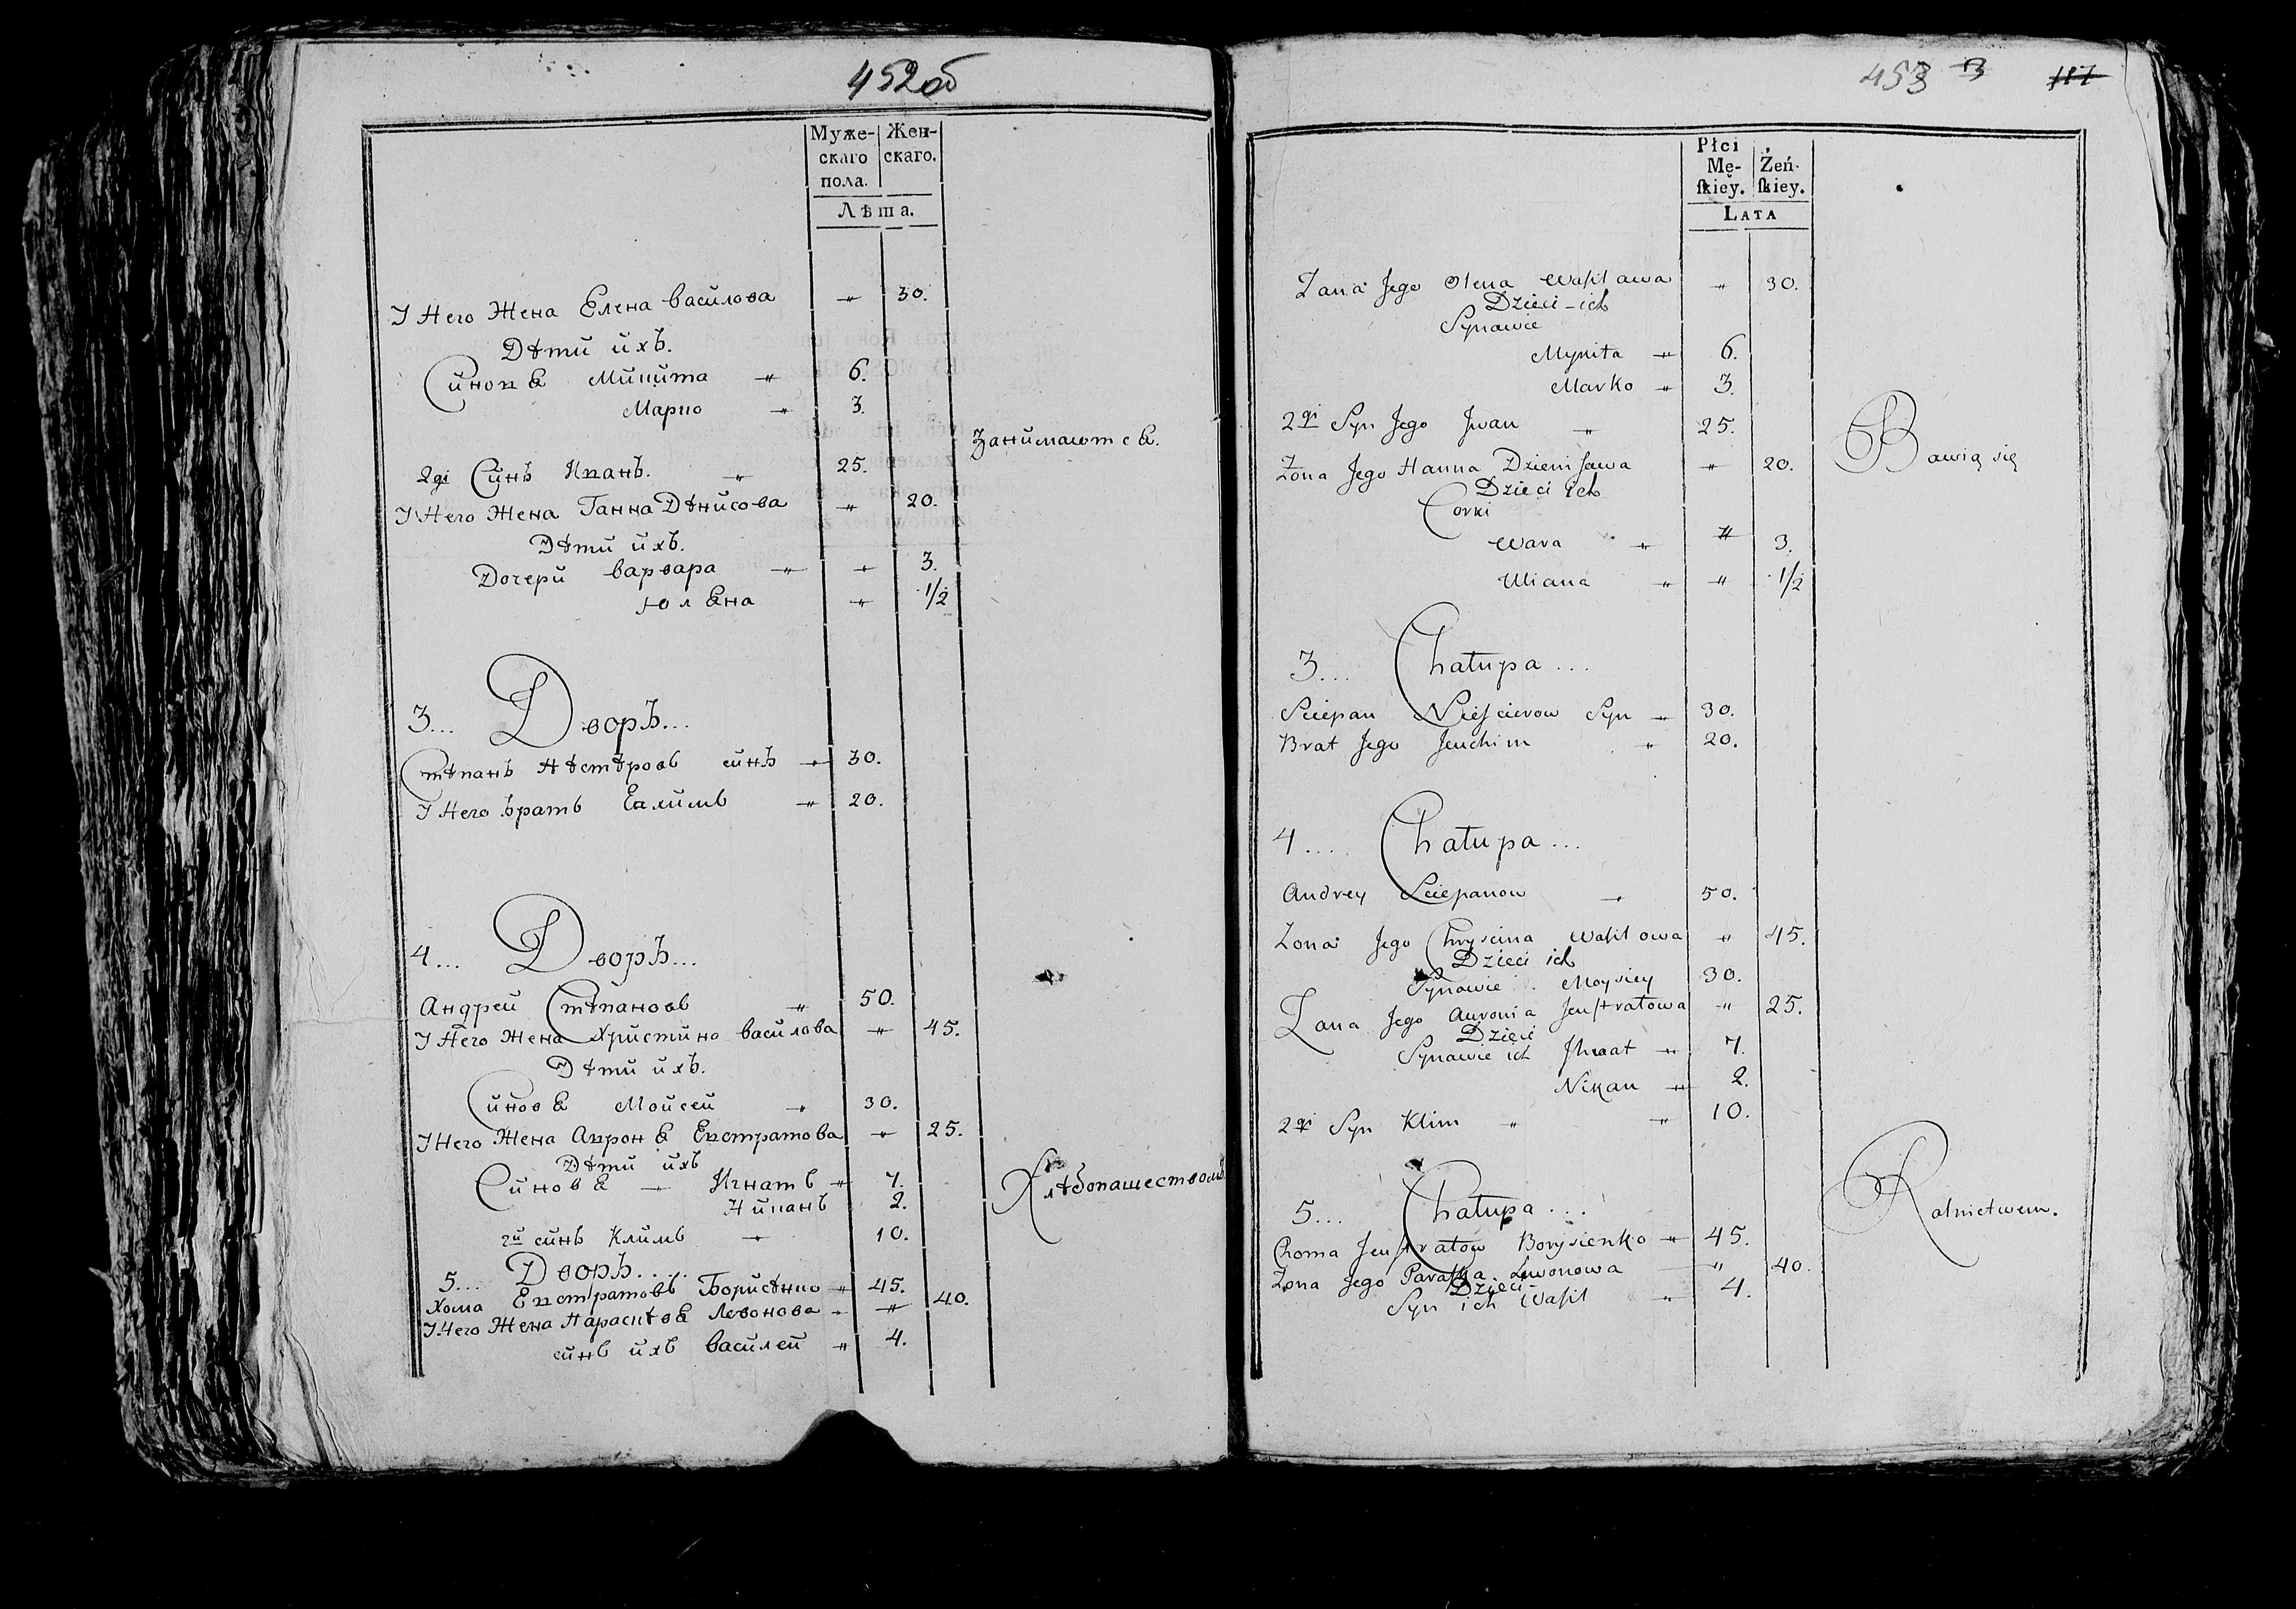 452об
Муже- Жен-
скаго скаго.
пола.
Лѣта.
I Него Жена Елена Василова " 30.
Дѣти ихъ.
Синовѧ Микита " 6.
Марко " 3.
Занимаютсѧ.
2gi Синъ Иванъ. " 25.
I Него Жена Ганна Дѣнисова " 20.
Дѣти ихъ.
Дочери Варвара " " 3.
Юлѧна " 1/2
3... Дворъ...
Стѣпанъ Нѣстѣровъ синъ " 30.
I Него братъ " 20.
4... Дворъ...
Андрей Стѣпановъ " 50.
I Него Жена Христино Василова " 45.
Дѣти ихъ.
Синовѧ Мойсей " 30.
I Него Жена Авронѧ Евстратова " 25.
Дѣти ихъ
Синовѧ — Игнатъ " 7.
Хлѣбопашествомъ.
Никанъ 2.
2й синъ Климъ " 10.
5... Дворъ...
Хома Евстратовъ Борисѣнко " 45.
I Него Жена Левонова " " 40.
синъ ихъ Василей " 4.
453 3 117
Płci
Mę- Żeń-
ſkiey. ſkiey.
LATA
Żona Jego Olena Wasilowa " 30.
Dzieci ich
Synowie
Mykita " 6.
Marko " 3.
2gi Syn Jego Jwan " 25.
Bawią się
Żona Jego Hanna Dzienisowa " 20.
Dzieci ich
Corki
Wara " " 3.
Uliana " " 1/2
3... Chałupa...
Sciepan Niescierow Syn " 30.
Brat Jego Jeuchim " 20.
4.... Chałupa...
Andrey Sciepanow " 50.
Żona Jego Chryscina Wasilowa " 45.
Dzieci ich
Synowie . Moysiey 30.
Żona Jego Auronia Jeustratowa " 25.
Dzieci
Synowie ich Jhnat " 7.
Nikan " 2.
2gi Syn Klim " " 10.
5... Chałupa...
Rolnictwem.
Choma Jeustratow Borysienko " 45.
Żona Jego Paraska Lewonowa " 40.
Dzieci
Syn ich Wasil " 4.